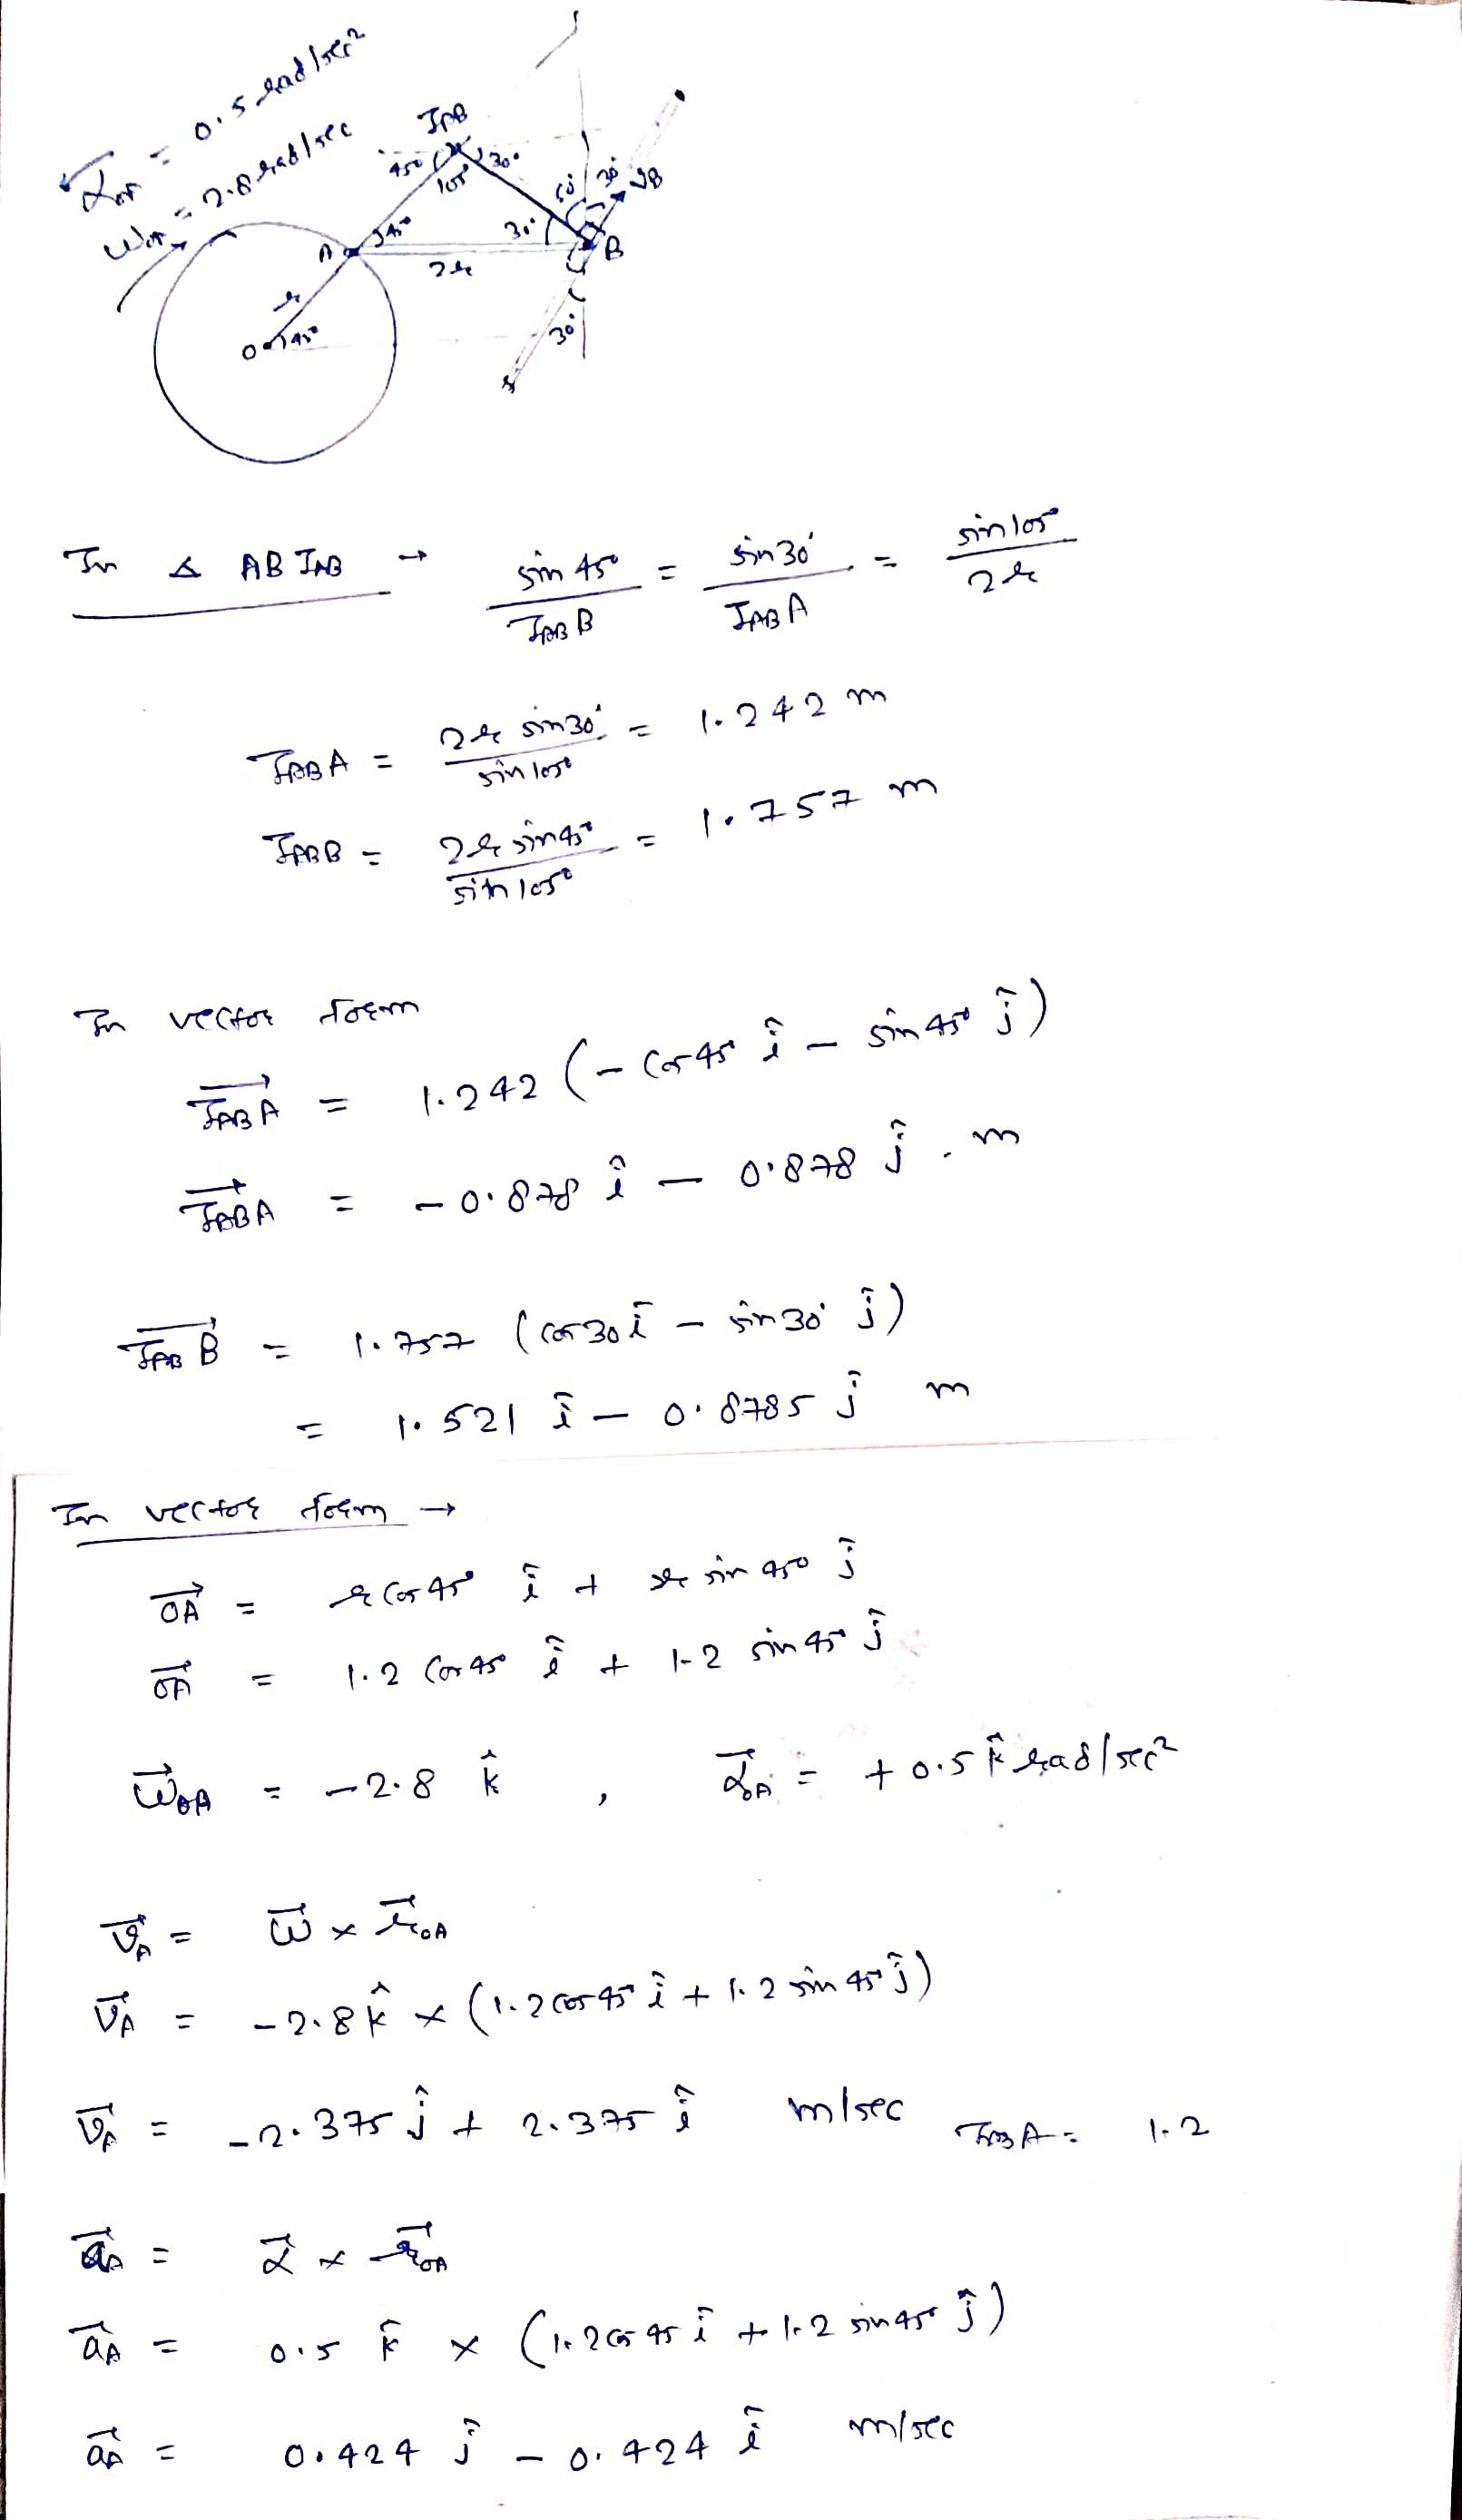 α_OA = 0.5 rad/sec²
ω_OA = 2.8 rad/sec
I_AB
45° 30°
105°
60° 30° v_B
A 45° 30° B
2r
r
O 45° 30°
In Δ AB I_AB → sin 45° / I_AB B = sin 30° / I_AB A = sin 105° / 2r
I_AB A = 2r sin 30° / sin 105° = 1.242 m
I_AB B = 2r sin 45° / sin 105° = 1.757 m
In vector form
I_AB A = 1.242 (- cos 45° î - sin 45° ĵ)
I_AB A = - 0.878 î - 0.878 ĵ . m
I_AB B = 1.757 (cos 30 î - sin 30° ĵ)
= 1.521 î - 0.8785 ĵ m
In vector form →
OA = r cos 45° î + r sin 45° ĵ
OA = 1.2 cos 45° î + 1.2 sin 45° ĵ
ω_OA = - 2.8 k̂ , α_OA = + 0.5 k̂ rad/sec²
v_A = ω × r_OA
v_A = - 2.8 k̂ × (1.2 cos 45° î + 1.2 sin 45° ĵ)
v_A = - 2.375 ĵ + 2.375 î m/sec I_AB A = 1.2
a_A = α × r_OA
a_A = 0.5 k̂ × (1.2 cos 45 î + 1.2 sin 45° ĵ)
a_A = 0.424 ĵ - 0.424 î m/sec